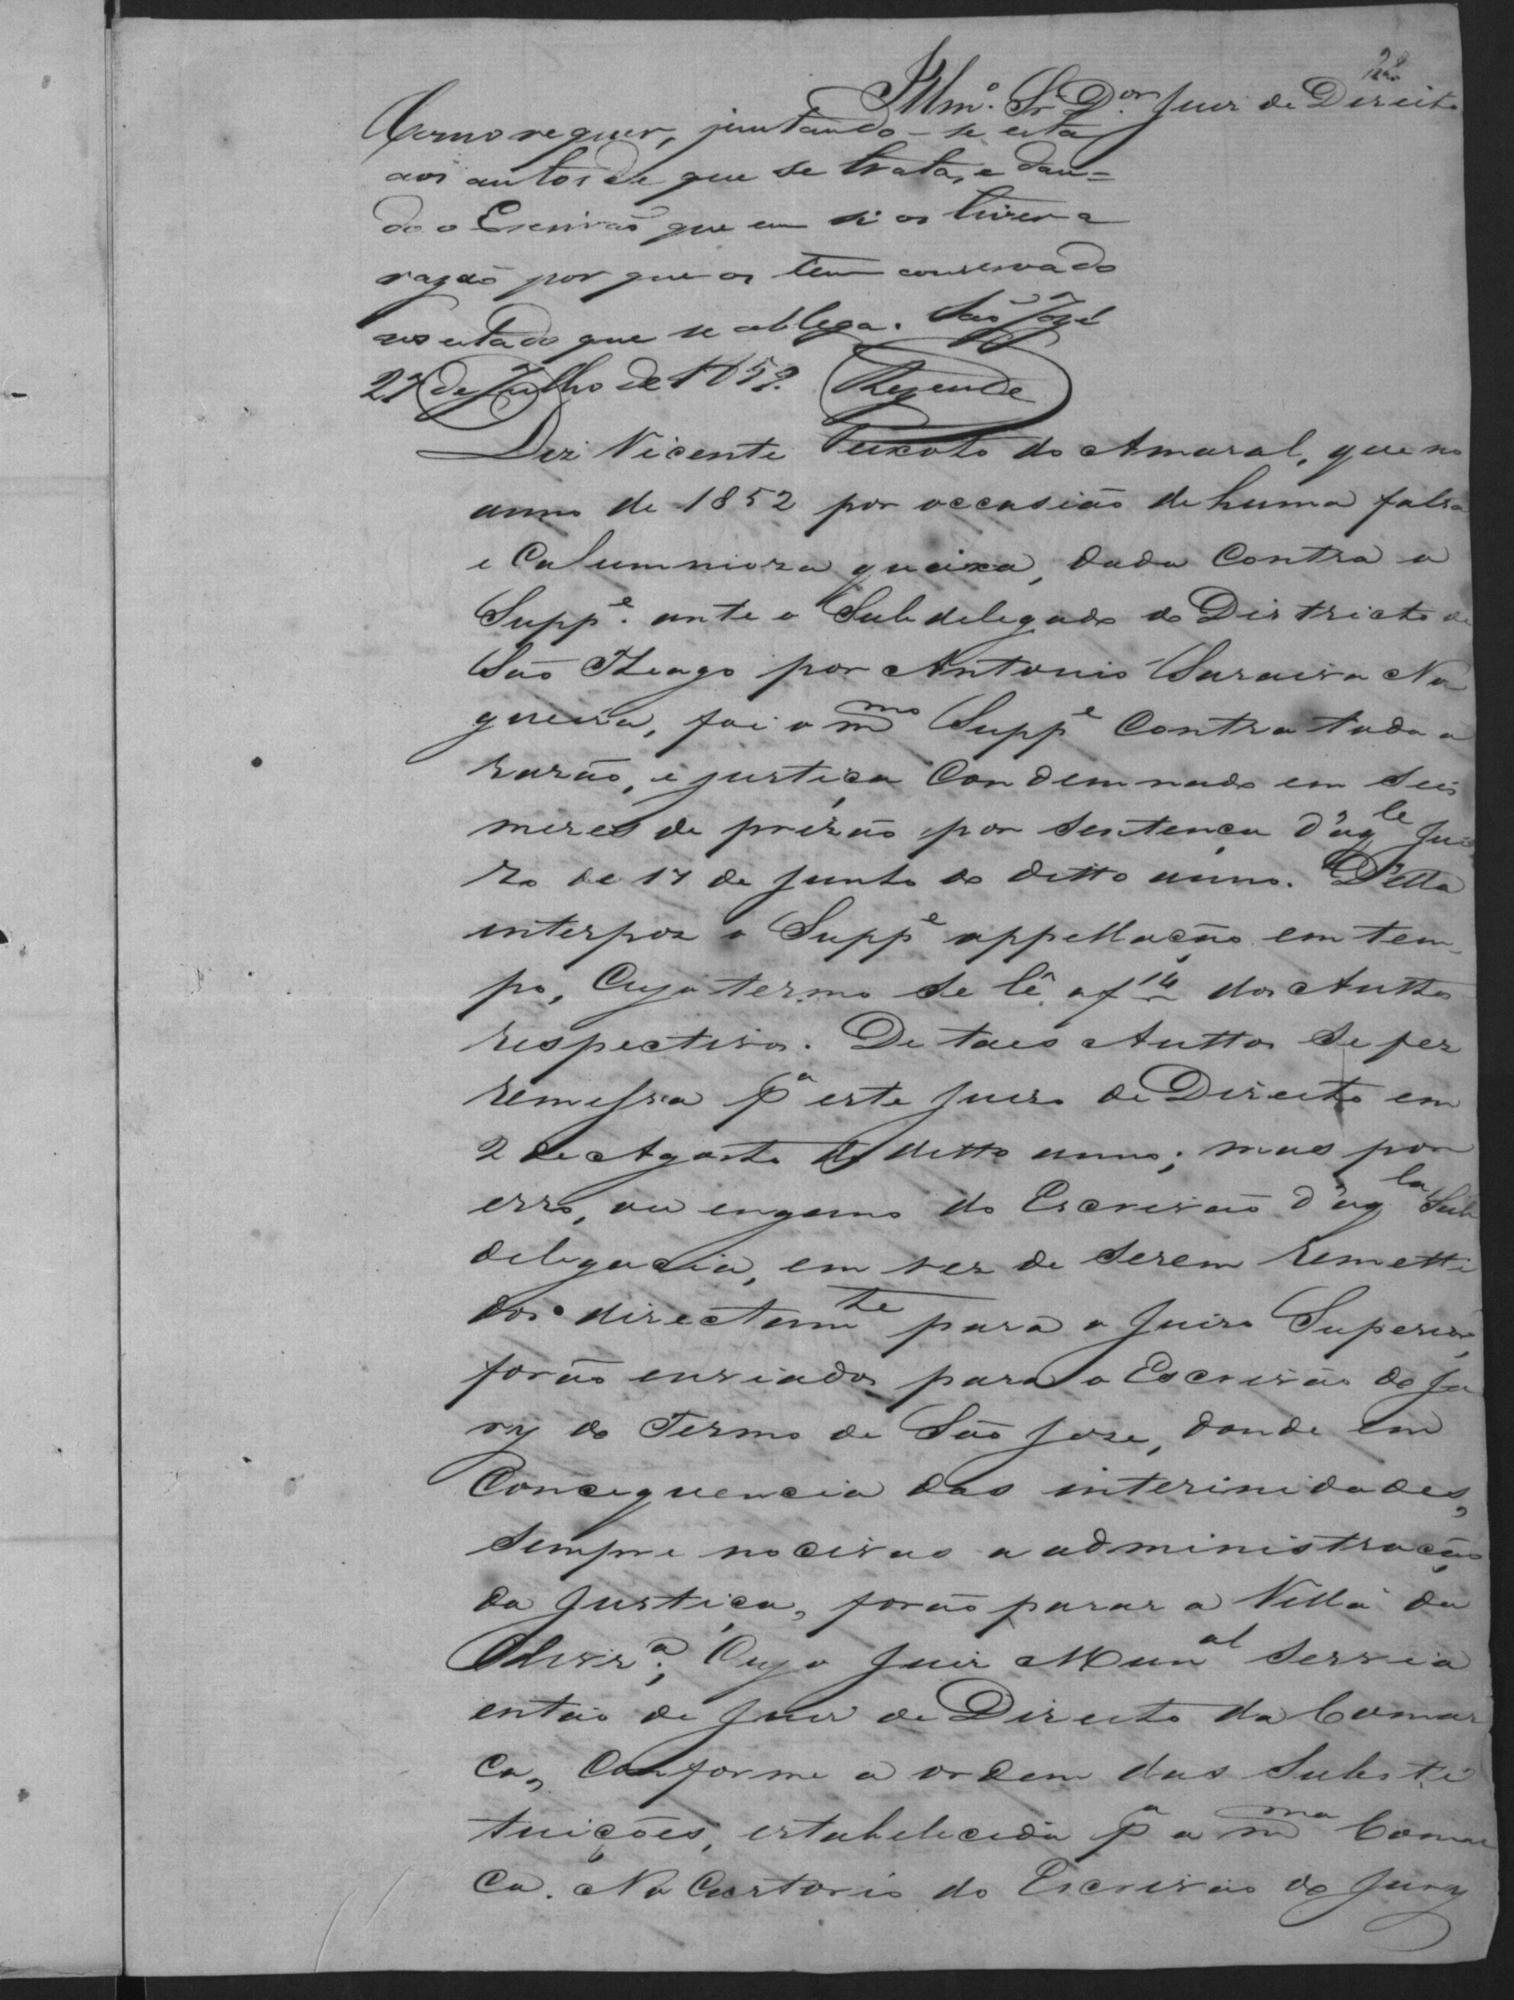 Illmº. Sr. Dor. Juiz de Direito
Como requer, juntando-se esta
aos autos de que se trata, e dan=
do o Escrivaõ que em si os tiver a
razaõ por que os tem conservado
no estado que se allega. Saõ José
27 de Julho de 1859. Rezende
Diz Vicente Peixoto do Amaral, que no
anno de 1852 por occasião de huma falsa
e Calumnioza queixa, dada Contra o
Suppe. ante o Subdelegado do Districto de
São Thiago por Antonio Saraiva No
gueira, foi o mmo Suppe Contra toda a
razão, e justiça Condemnado em Seis
mezes de prizão por Sentença d'aqle Jui
zo de 17 de Junho do ditto anno. D'ella
interpoz o Suppe appellação em tem
po, Cujo termo se lê a f 14 dos Auttos
respectivos. De taes Auttos se fez
remessa pa este Juizo de Direito em
2 de Agosto do ditto anno; mas por
erro, ou engano do Escrivão d'aqla Sub
delegacia, em vez de serem remetti
dos directamte para o Juizo Superior,
forão enviados para o Escrivão do Ju
ry do Termo de São Jose, donde em
Consequencia das interinidades,
sempre nocivas a administração
da Justiça, forão parar a Villa da
Olivra; Cujo Juiz Munal servia
então de Juiz de Direito da Comar
ca, Conforme a ordem das Substi
tuições, estabelecida pa a mma Comar
ca. No Cartorio do Escrivão do Jury